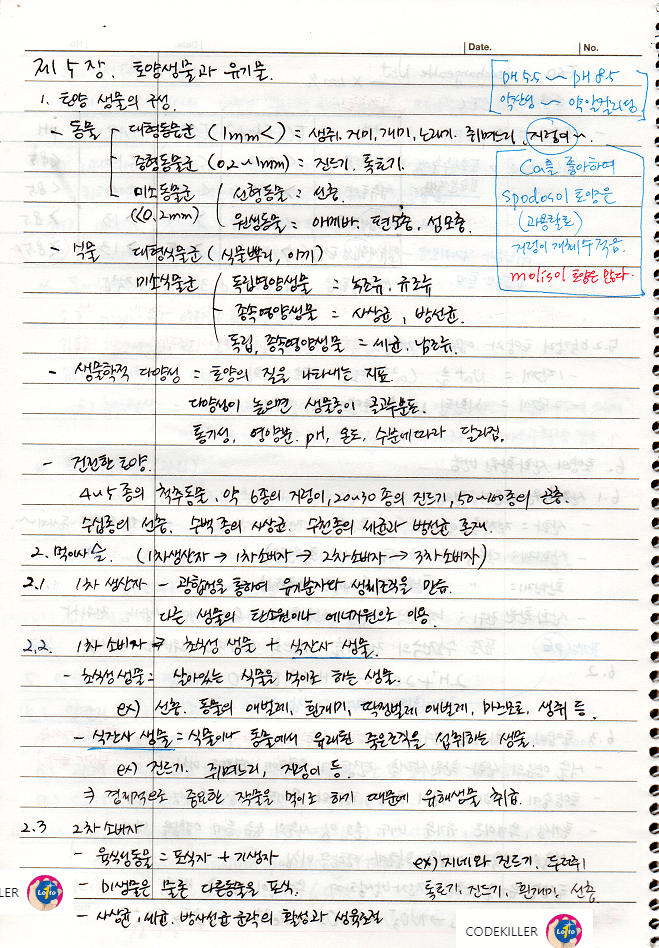 Date. No.
제 5 장. 토양생물과 유기물.
pH 5.5 ~ pH 8.5
약산성 ~ 약알칼리성
1. 토양 생물의 구성.
- 동물 대형동물군 (1mm<) = 생쥐, 거미, 개미, 노래기. 쥐며느리, 지렁이~
중형동물군 (0.2~1mm) = 진드기, 톡토기.
미소동물군 (<0.2mm) 선형동물 = 선충.
원생동물 = 아메바, 편모충, 섬모충.
Ca를 좋아하여
spodosol 토양은
(과용탈로)
지렁이 개체수 적음.
molisol 토양은 많다.
- 식물 대형식물군 (식물뿌리, 이끼)
미소식물군 독립영양생물 = 녹조류, 규조류
종속영양생물 = 사상균, 방선균.
독립, 종속영양생물 = 세균. 남조류.
- 생물학적 다양성 = 토양의 질을 나타내는 지표.
다양성이 높으면 생물종이 골고루분포.
통기성, 영양분. pH, 온도, 수분에따라 달라짐.
- 건전한 토양.
4~5 종의 척추동물, 약 6종의 지렁이, 20~30 종의 진드기, 50~100종의 곤충.
수십종의 선충. 수백 종의 사상균. 수천종의 세균과 방선균 존재.
2. 먹이사슬. (1차생산자 → 1차소비자 → 2차소비자 → 3차소비자)
2.1 1차 생산자 - 광합성을 통하여 유기분자와 생체조직을 만듬.
다른 생물의 탄소원이나 에너지원으로 이용.
2.2. 1차 소비자 ⇒ 초식성 생물 + 식잔사 생물.
- 초식성생물 = 살아있는 식물을 먹이로 하는 생물.
ex) 선충. 동물의 애벌레, 흰개미, 딱정벌레 애벌레, 마으모트, 생쥐 등.
- 식잔사 생물 = 식물이나 동물에서 유래된 죽은조직을 섭취하는 생물.
ex) 진드기. 쥐며느리, 지렁이 등.
⇒ 경제적으로 중요한 작물을 먹이로 하기 때문에 유해생물 취급.
2.3 2차 소비자
- 육식성동물 = 포식자 + 기생자 ex) 지네와 진드기, 두더쥐
- 미생물은 물론 다른동물을 포식. 톡토기, 진드기, 흰개미, 선충.
- 사상균, 세균, 방사선균 군락의 활성과 생육조절
KILLER Lotto
CODEKILLER Lotto